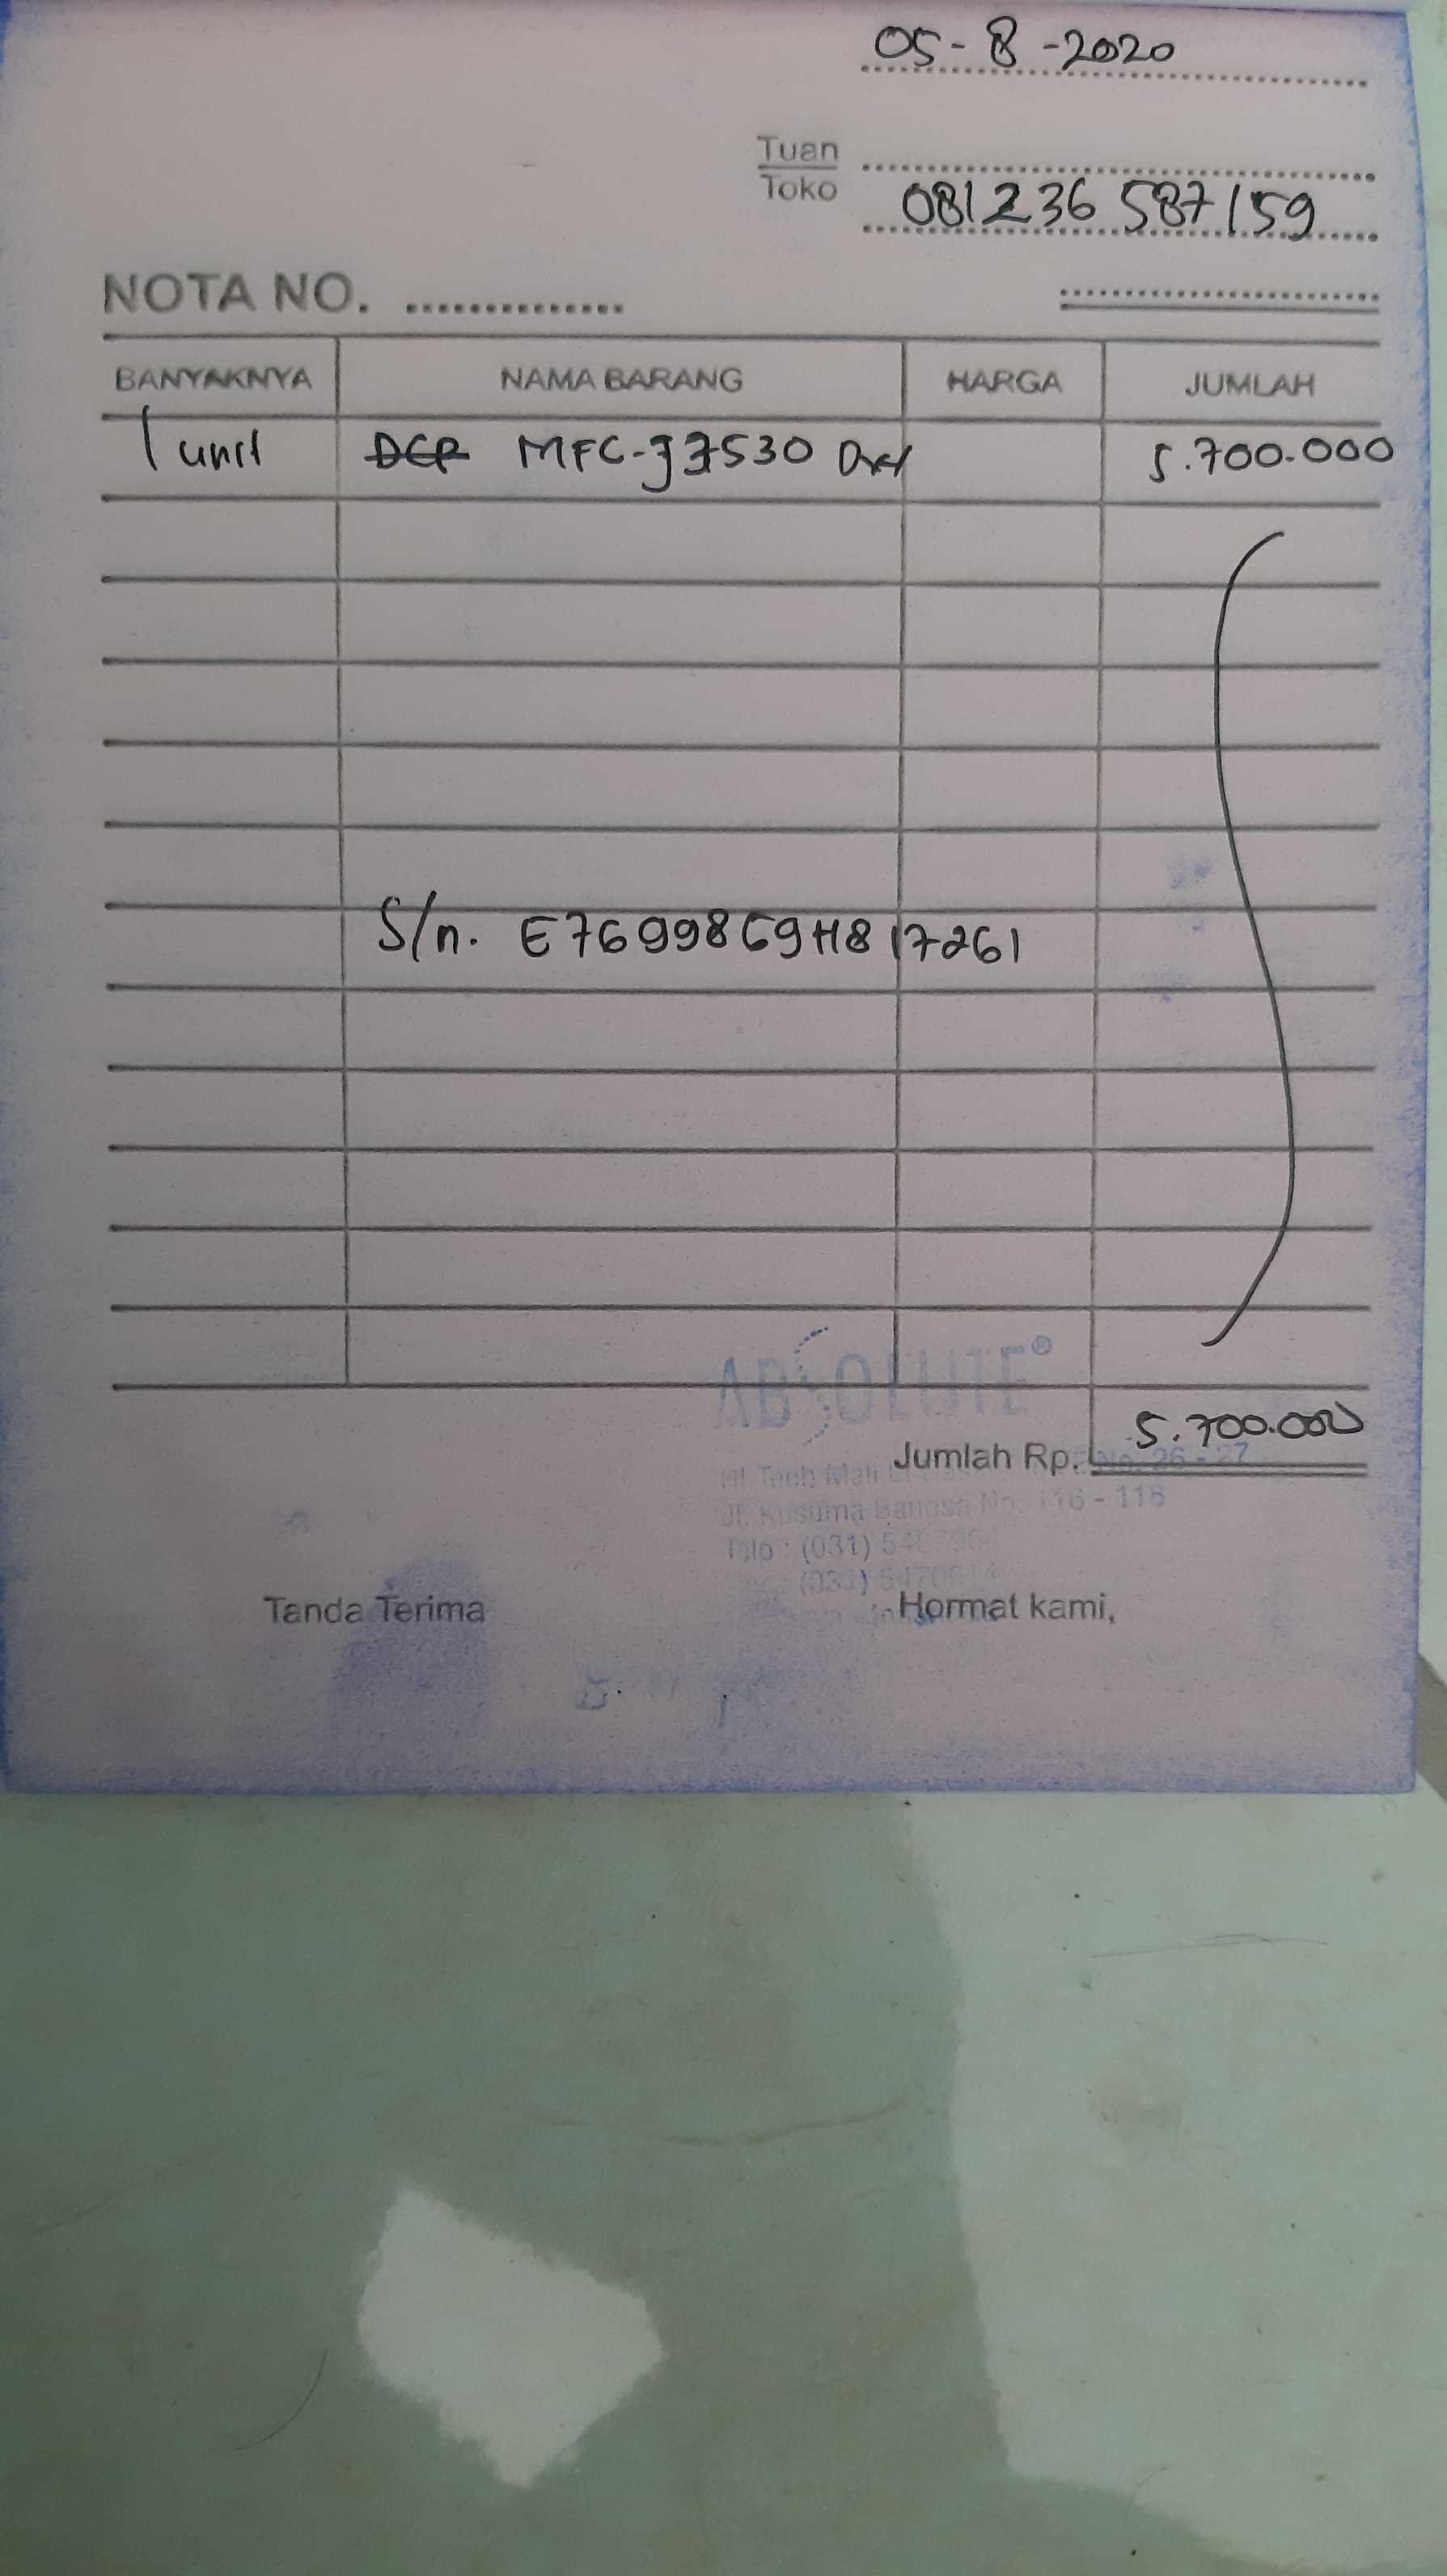 05-8-2020
Tuan
Toko
081236 587159
NOTA NO. ...............
BANYAKNYA NAMA BARANG HARGA JUMLAH
1 unit DCP MFC-J3530 5.700.000
S/n. E76998G9H817261
ABSOLUTE®
5.700.000
Jumlah Rp. No. 26 - 27
Jl. Kusuma Bangsa No. 116 - 118
Telp : (031)
(031)
Tanda Terima Hormat kami,